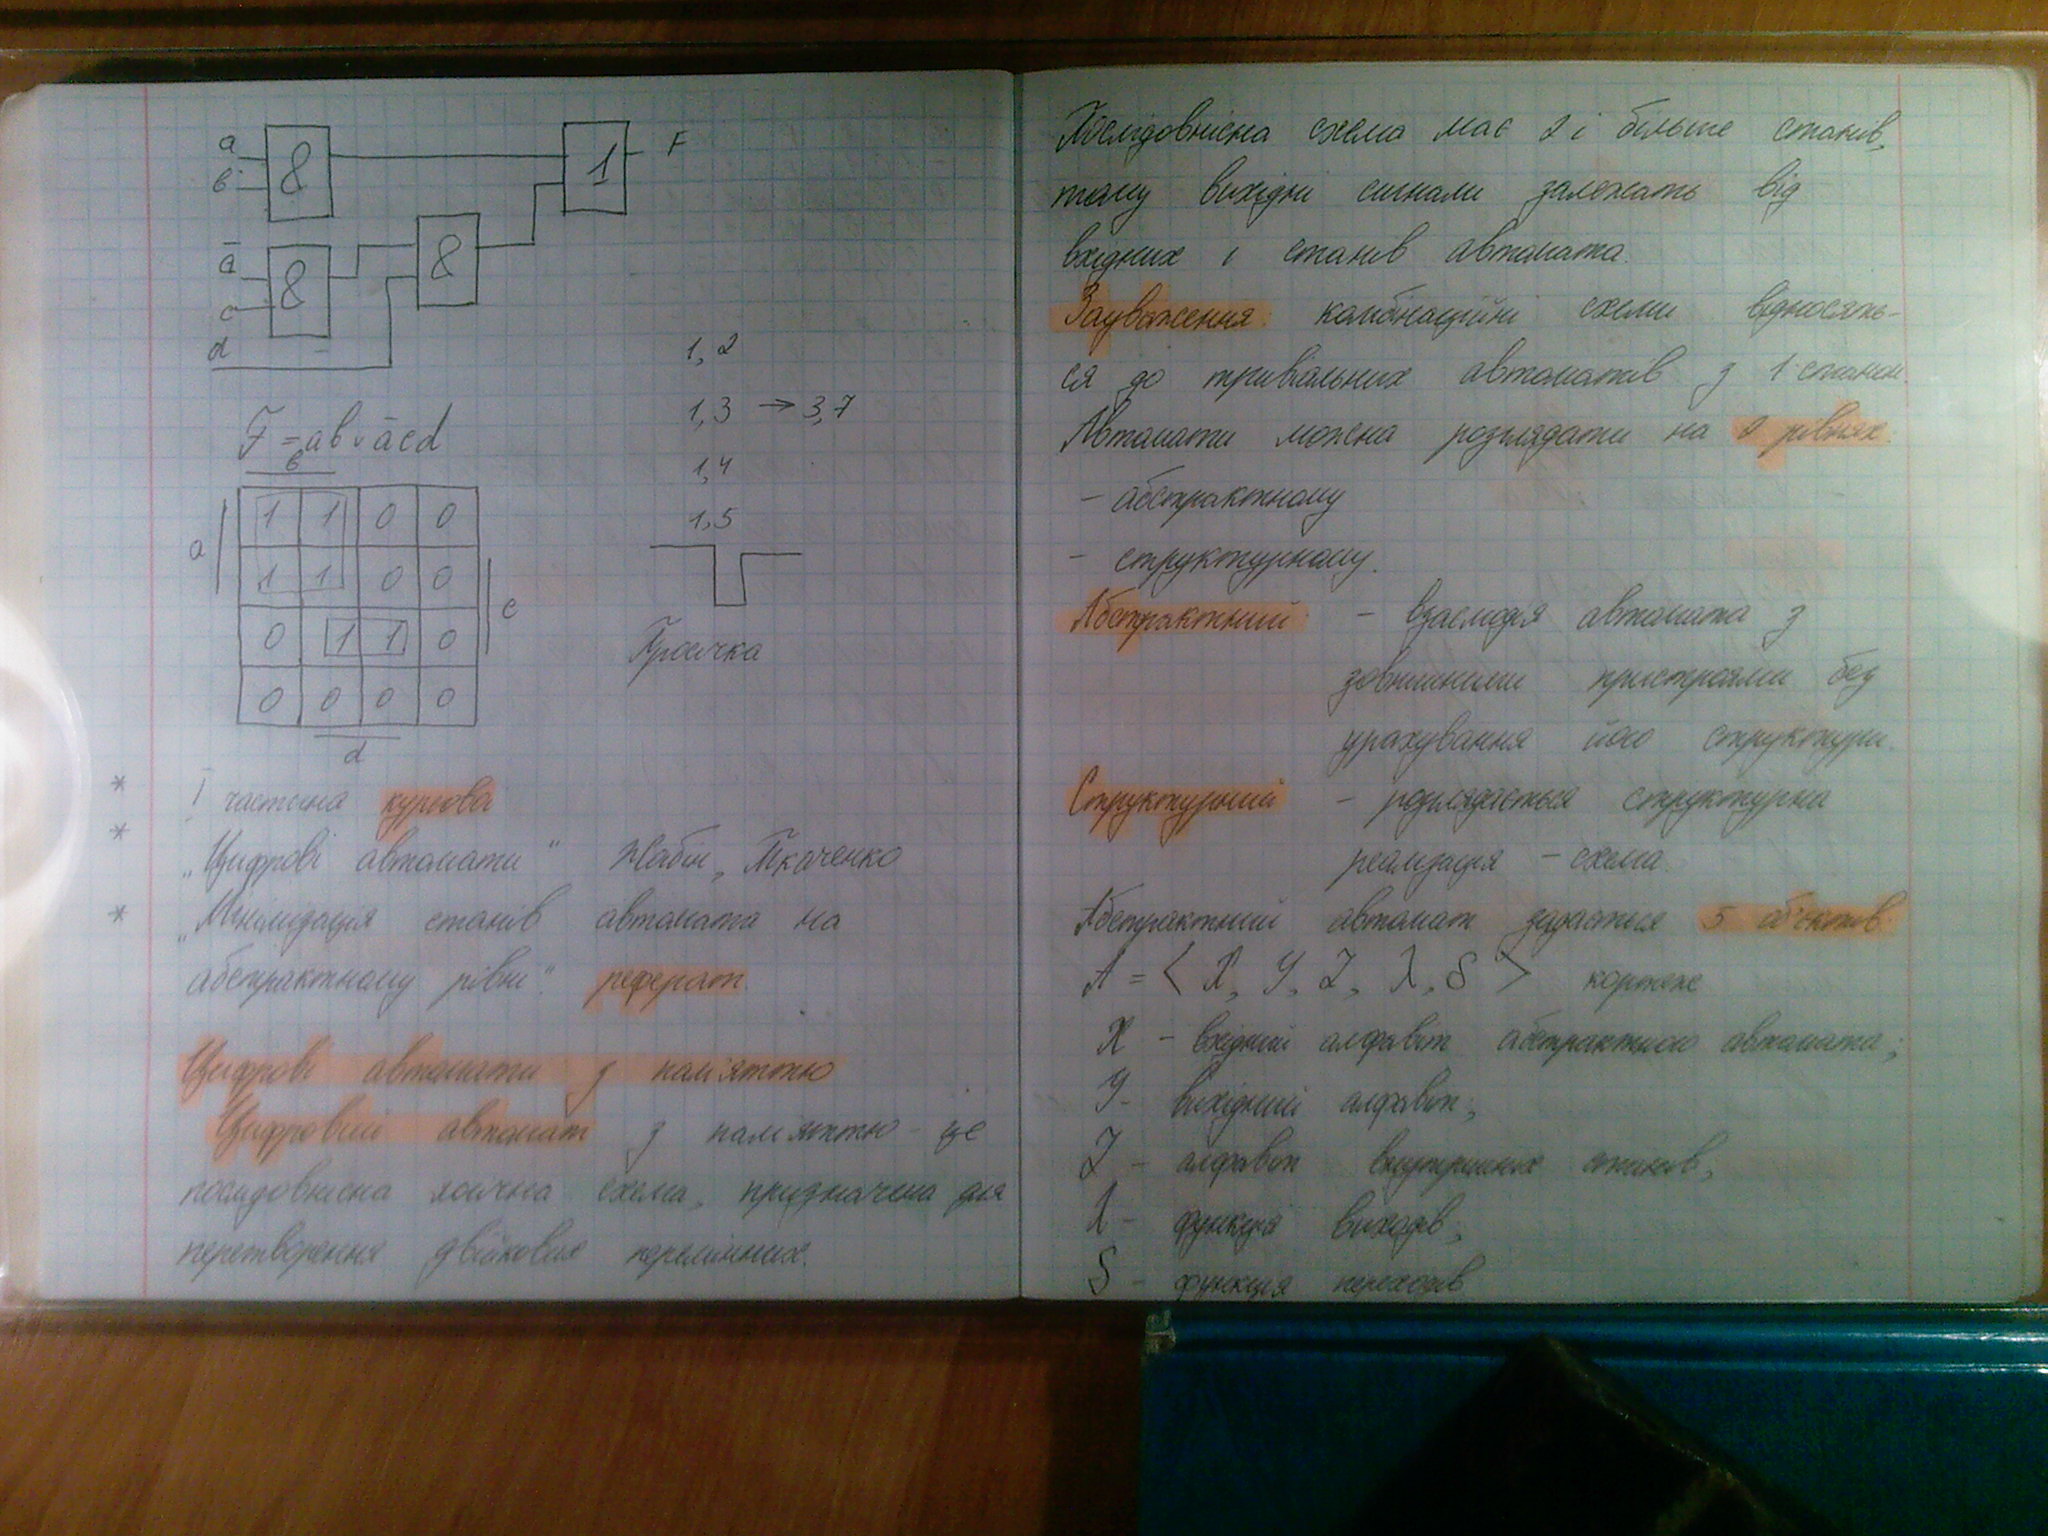 a
в
&
1
F
ā
c
&
&
d
1, 2
1, 3 → 3, 7
1, 4
1, 5
F = ab ∨ ācd
в
a
1 1 0 0
1 1 0 0
c
0 1 1 0
0 0 0 0
d
* I частина курсова
* „Цифрові автомати" Жабін, Ткаченко
* „Мінімізація станів автомата на
абстрактному рівні". реферат.
Цифрові автомати з пам'яттю
Цифровий автомат з пам'яттю - це
послідовнісна логічна схема, призначена для
перетворення двійкових перемінних.
Послідовнісна схема має 2 і більше станів,
тому вихідні сигнали залежать від
вхідних і станів автомата.
Зауваження: комбінаційні схеми відносять-
ся до тривіальних автоматів з 1 станом
Автомати можна розглядати на 2 рівнях:
- абстрактному
- структурному.
Абстрактний: - взаємодія автомата з
зовнішніми пристроями без
урахування його структури.
Структурний - розглядається структурна
реалізація - схема.
Абстрактний автомат задається 5 об'єктів:
A = < X, Y, Z, λ, δ > кортеж
X - вхідний алфавіт абстрактного автомата;
Y - вихідний алфавіт;
Z - алфавіт внутрішніх станів;
λ - функція виходів;
δ - функція переходів